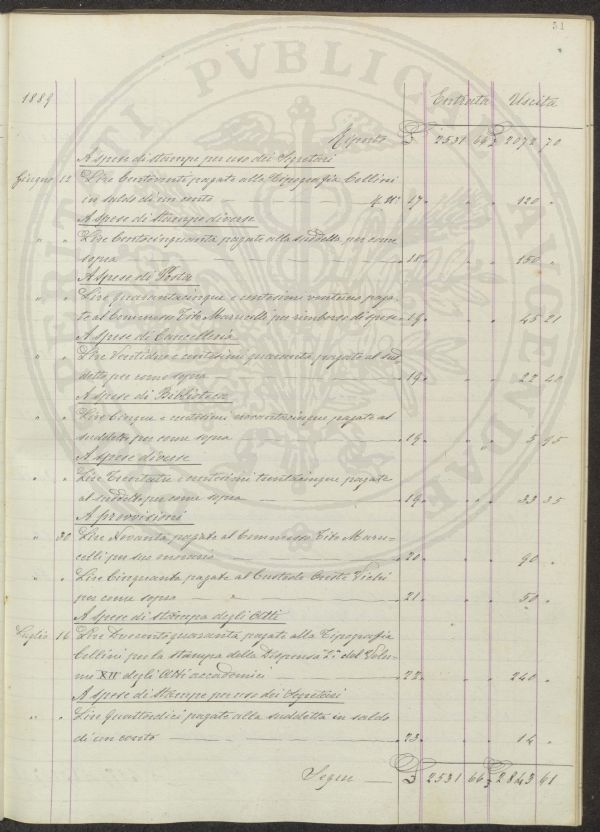 51
1889 Entrata Uscita
Riporto £ 2531 66 £ 2072 70
A spese di stampe per uso dei Segretari
Giugno 12 Lire Centoventi pagate alla Tipografia Cellini
in saldo di un conto 17 " 120 "
A spese di Stampe diverse
" " Lire Centocinquanta pagate alla suddetta per come
sopra 18 " 150 "
A spese di Posta
" " Lire quarantacinque e centesimi ventuno paga-
te al Commesso Tito Marucelli per rimborso di spese 19 " 45 21
A spese di Cancelleria
" " Lire Ventidue e centesimi quaranta pagate al sud
detto per come sopra 19 " 22 40
A spese di Biblioteca
" " Lire Cinque e centesimi novantacinque pagate al
suddetto per come sopra 19 " 5 95
A spese diverse
" " Lire Trentatre e centesimi trentacinque pagate
al suddetto per come sopra 19 " 33 35
A provvisioni
" 30 Lire Novanta pagate al Commesso Tito Maru-
celli per suo onorario 20 " 90 "
" " Lire Cinquanta pagate al Custode Oreste
per come sopra 21 " 50 "
A spese di stampa degli Atti
Luglio 16 Lire Duecentoquaranta pagate alla Tipografia
Cellini per la stampa della Dispensa 2a del Volu-
me XII degli Atti accademici 22 " 240 "
A spese di Stampe per uso dei Segretari
" " Lire Quattordici pagate alla suddetta in saldo
di un conto 23 " 14 "
Segue £ 2531 66 £ 2843 61